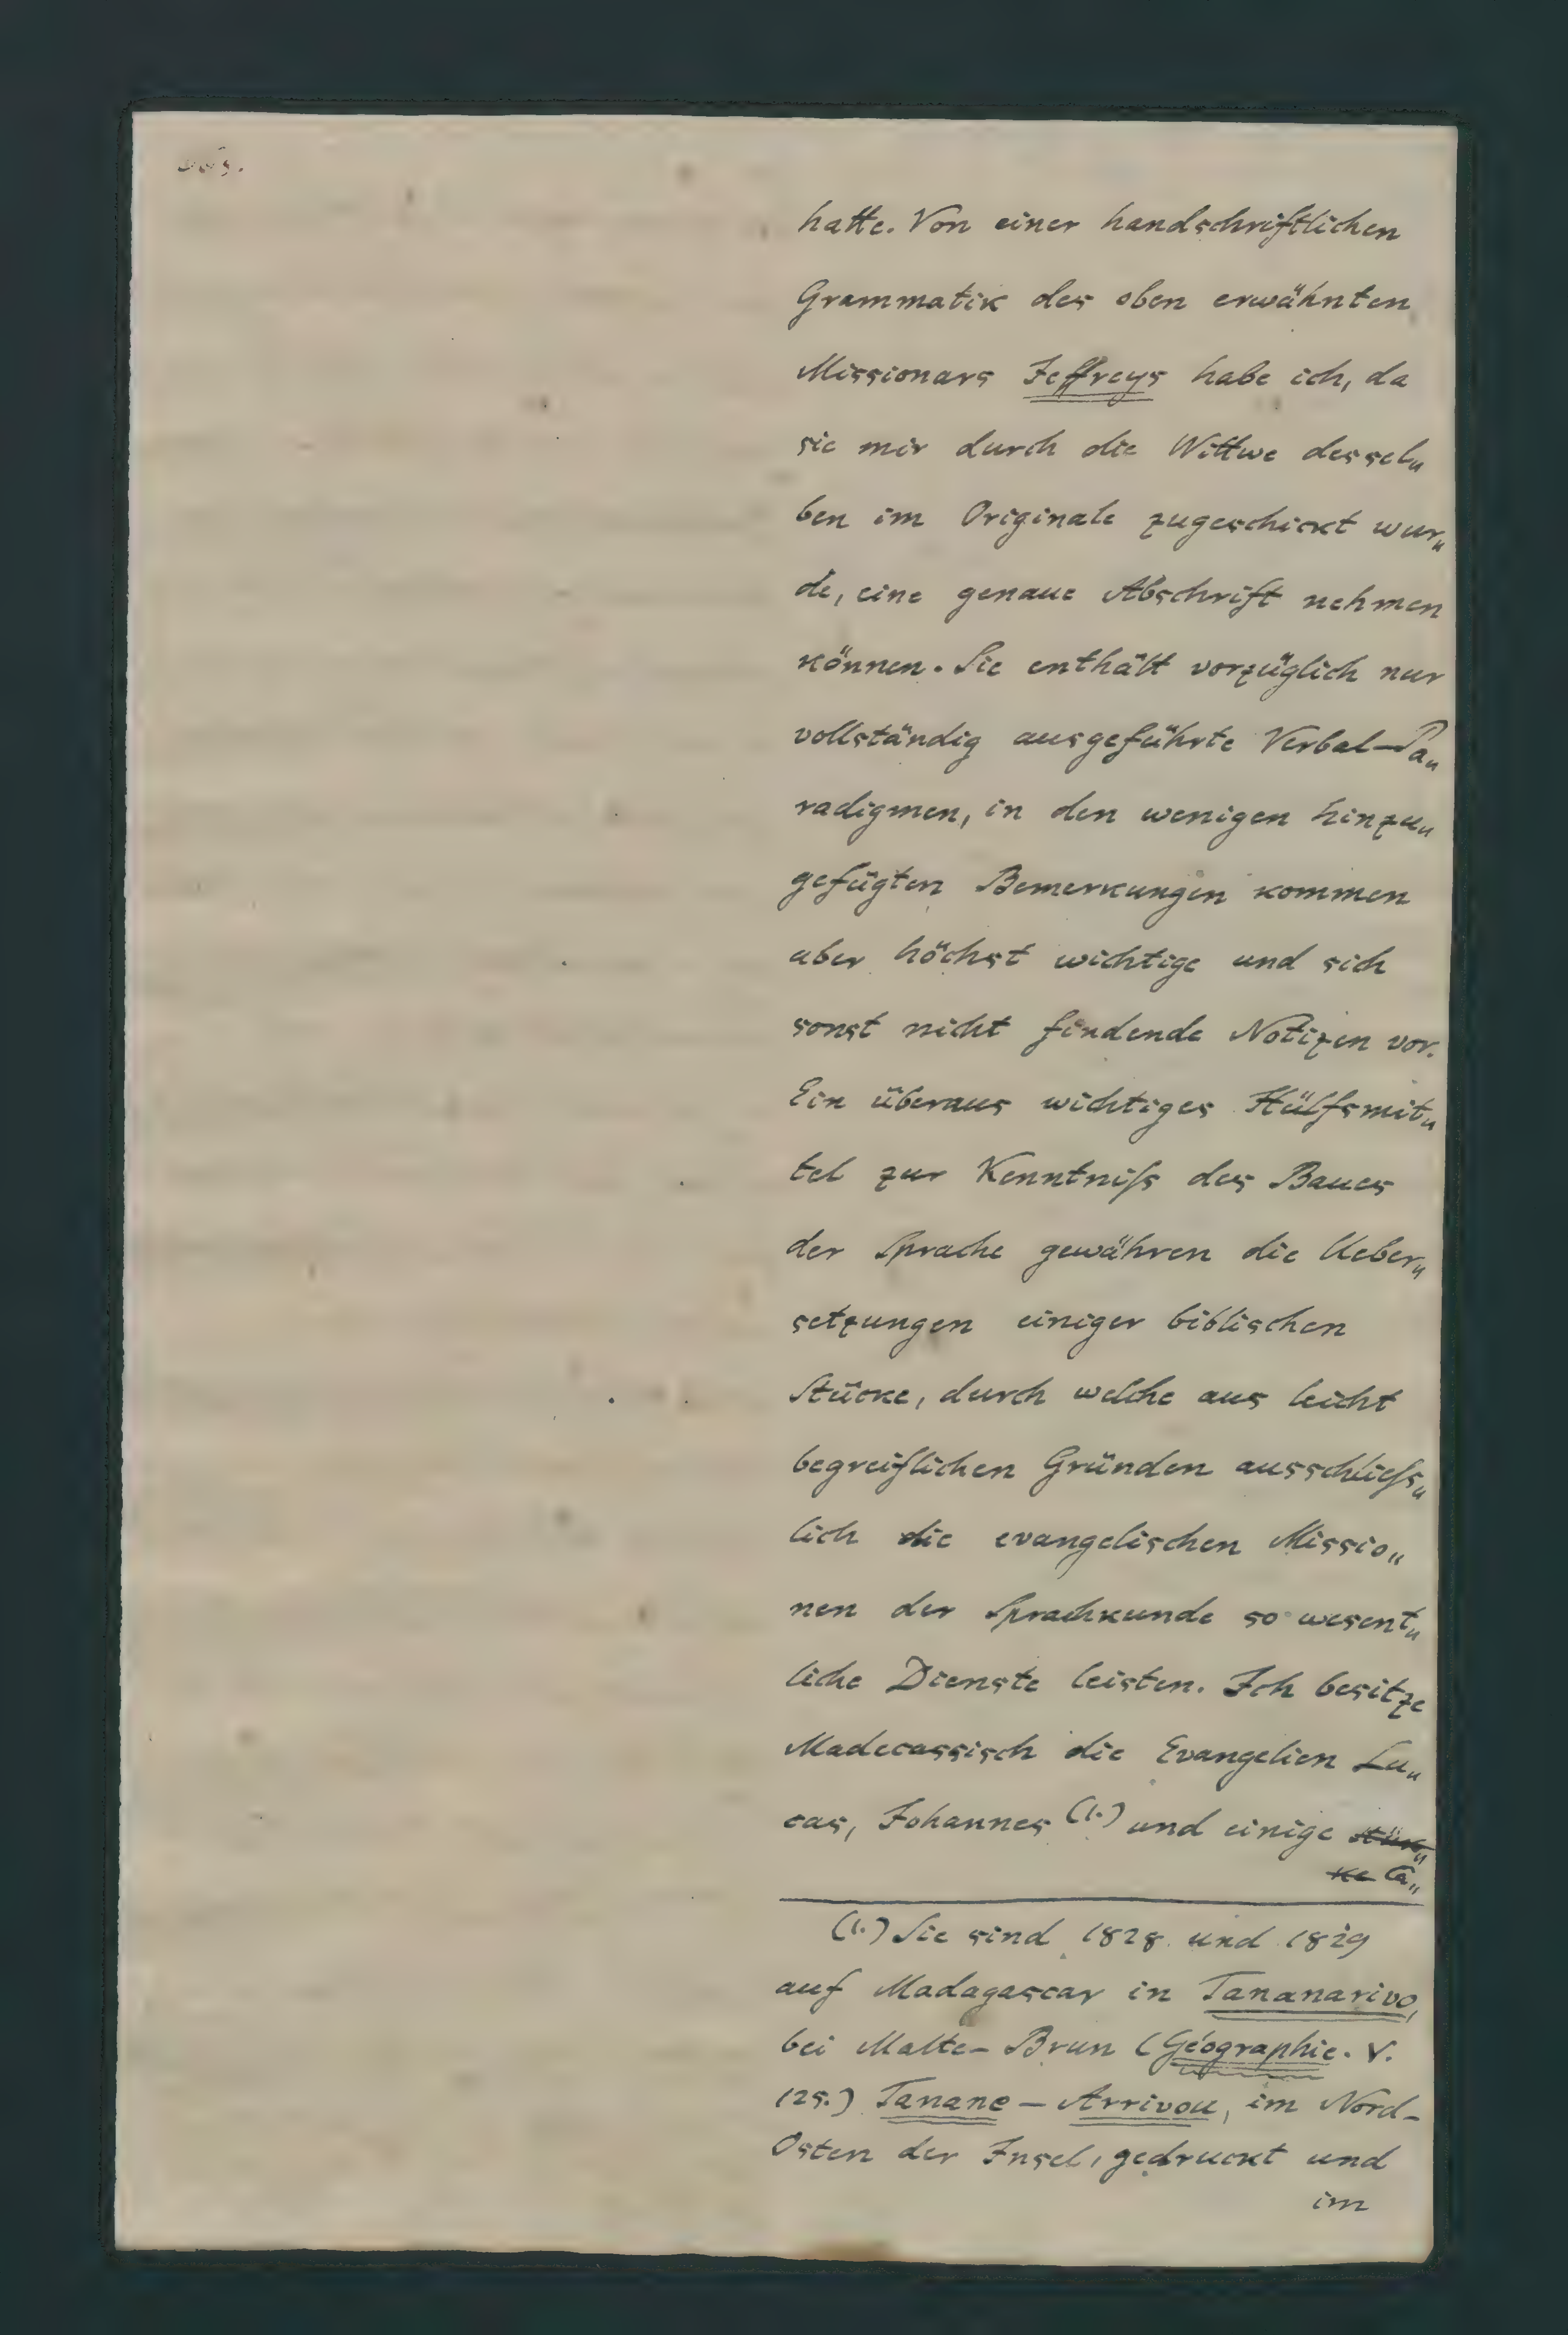 hatte. Von einer handschriftlichen
Grammatik des oben erwähnten
Missionars Jeffreys habe ich, da
sie mir durch die Wittwe dessel„
ben im Originale zugeschickt wur„
de, eine genaue Abschrift nehmen
können. Sie enthält vorzüglich nur
vollständig ausgeführte Verbal-Pa„
radigmen, in den wenigen hinzu„
gefügten Bemerkungen kommen
aber höchst wichtige und sich
sonst nicht findende Notizen vor.
Ein überaus wichtiges Hülfsmit„
tel zur Kenntniſs des Baues
der Sprache gewähren die Ueber„
setzungen einiger biblischen
Stücke, durch welche aus leicht
begreiflichen Gründen ausschlieſs„
lich die evangelischen Missio„
nen der Sprachkunde so wesent„
liche Dienste leisten. Ich besitze
Madecassisch die Evangelien Lu„
cas, Johannes (1.) und einige Stük„
ke Ca„
(1.) Sie sind 1828 und 1829
auf Madagascar in Tananarivo,
bei Malte-Brun (Géographie. V.
125.) Tanane-Arrivou, im Nord-
Osten der Insel, gedruckt und
im